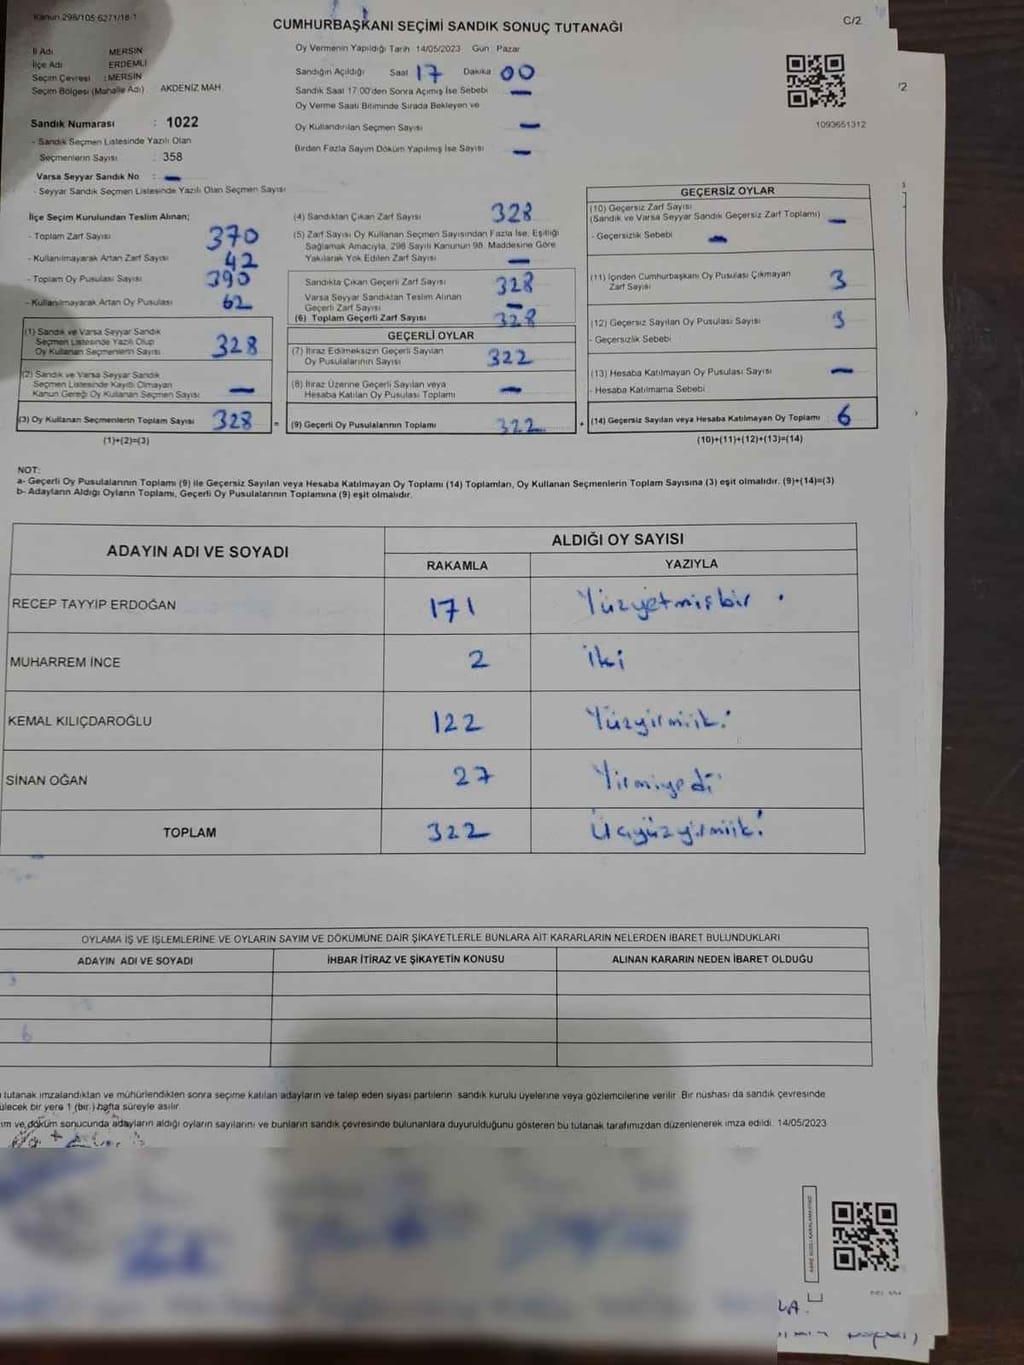 Kanun 298/105-6271/18-1
CUMHURBAŞKANI SEÇİMİ SANDIK SONUÇ TUTANAĞI
C/2
İl Adı MERSİN
İlçe Adı ERDEMLİ
Seçim Çevresi : MERSİN
Seçim Bölgesi (Mahalle Adı) AKDENİZ MAH.
Sandık Numarası : 1022
- Sandık Seçmen Listesinde Yazılı Olan
Seçmenlerin Sayısı : 358
Varsa Seyyar Sandık No : -
- Seyyar Sandık Seçmen Listesinde Yazılı Olan Seçmen Sayısı
Oy Vermenin Yapıldığı Tarih 14/05/2023 Gün Pazar
Sandığın Açıldığı Saat 17 Dakika 00
Sandık Saat 17:00'den Sonra Açımış İse Sebebi -
Oy Verme Saati Bitiminde Sırada Bekleyen ve
Oy Kullandırılan Seçmen Sayısı -
Birden Fazla Sayım Döküm Yapılmış İse Sayısı -
1093651312
/2
İlçe Seçim Kurulundan Teslim Alınan;
- Toplam Zarf Sayısı 370
- Kullanılmayarak Artan Zarf Sayısı 42
- Toplam Oy Pusulası Sayısı 390
- Kullanılmayarak Artan Oy Pusulası 62
(1) Sandık ve Varsa Seyyar Sandık
Seçmen Listesinde Yazılı Olup
Oy Kullanan Seçmenlerin Sayısı 328
(2) Sandık ve Varsa Seyyar Sandık
Seçmen Listesinde Kayıtlı Olmayan
Kanun Gereği Oy Kullanan Seçmen Sayısı -
(3) Oy Kullanan Seçmenlerin Toplam Sayısı 328
(1)+(2)=(3)
(4) Sandıktan Çıkan Zarf Sayısı 328
(5) Zarf Sayısı Oy Kullanan Seçmen Sayısından Fazla İse, Eşitliği
Sağlamak Amacıyla, 298 Sayılı Kanunun 98. Maddesine Göre
Yakılarak Yok Edilen Zarf Sayısı -
Sandıkta Çıkan Geçerli Zarf Sayısı 328
Varsa Seyyar Sandıktan Teslim Alınan
Geçerli Zarf Sayısı -
(6) Toplam Geçerli Zarf Sayısı 328
GEÇERLİ OYLAR
(7) İtiraz Edilmeksizin Geçerli Sayılan
Oy Pusulalarının Sayısı 322
(8) İtiraz Üzerine Geçerli Sayılan veya
Hesaba Katılan Oy Pusulası Toplamı -
= (9) Geçerli Oy Pusulalarının Toplamı 322
GEÇERSİZ OYLAR
(10) Geçersiz Zarf Sayısı
(Sandık ve Varsa Seyyar Sandık Geçersiz Zarf Toplamı) -
- Geçersizlik Sebebi -
(11) İçinden Cumhurbaşkanı Oy Pusulası Çıkmayan
Zarf Sayısı 3
(12) Geçersiz Sayılan Oy Pusulası Sayısı 3
- Geçersizlik Sebebi
(13) Hesaba Katılmayan Oy Pusulası Sayısı -
- Hesaba Katılmama Sebebi
+ (14) Geçersiz Sayılan veya Hesaba Katılmayan Oy Toplamı 6
(10)+(11)+(12)+(13)=(14)
NOT:
a- Geçerli Oy Pusulalarının Toplamı (9) ile Geçersiz Sayılan veya Hesaba Katılmayan Oy Toplamı (14) Toplamları, Oy Kullanan Seçmenlerin Toplam Sayısına (3) eşit olmalıdır. (9)+(14)=(3)
b- Adayların Aldığı Oyların Toplamı, Geçerli Oy Pusulalarının Toplamına (9) eşit olmalıdır.
ADAYIN ADI VE SOYADI
ALDIĞI OY SAYISI
RAKAMLA YAZIYLA
RECEP TAYYİP ERDOĞAN 171 Yüzyetmişbir
MUHARREM İNCE 2 iki
KEMAL KILIÇDAROĞLU 122 Yüzyirmiiki
SİNAN OĞAN 27 Yirmiyedi
TOPLAM 322 Üçyüzyirmiiki
OYLAMA İŞ VE İŞLEMLERİNE VE OYLARIN SAYIM VE DÖKÜMÜNE DAİR ŞİKAYETLERLE BUNLARA AİT KARARLARIN NELERDEN İBARET BULUNDUKLARI
ADAYIN ADI VE SOYADI İHBAR İTİRAZ VE ŞİKAYETİN KONUSU ALINAN KARARIN NEDEN İBARET OLDUĞU
tutanak imzalandıktan ve mühürlendikten sonra seçime katılan adayların ve talep eden siyasi partilerin sandık kurulu üyelerine veya gözlemcilerine verilir. Bir nüshası da sandık çevresinde
ülecek bir yere 1 (bir) hafta süreyle asılır.
ım ve döküm sonucunda adayların aldığı oyların sayılarını ve bunların sandık çevresinde bulunanlara duyurulduğunu gösteren bu tutanak tarafımızdan düzenlenerek imza edildi. 14/05/2023